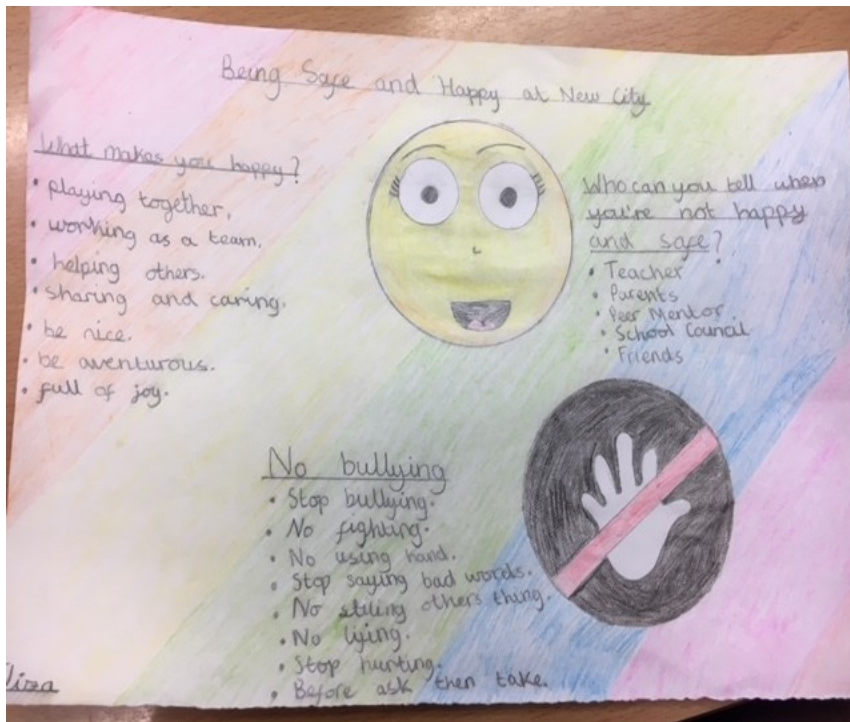 Being Safe and Happy at New City
What makes you happy?
• playing together.
• working as a team.
• helping others.
• sharing and caring.
• be nice.
• be aventurous.
• full of joy.
Who can you tell when
you're not happy
and safe?
• Teacher
• Parents
• Peer Mentor.
• School Council
• Friends
No bullying
• Stop bullying.
• No fighting.
• No using hand.
• Stop saying bad words.
• No stiling others thing.
• No lying.
• Stop hurting.
• Before ask then take.